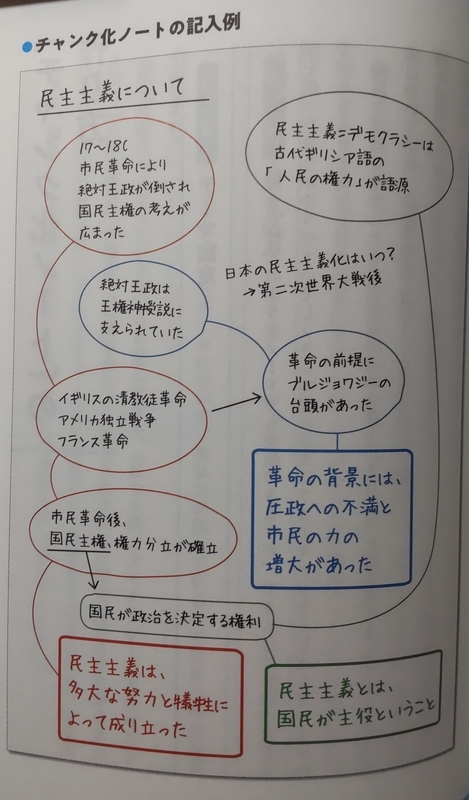 ●チャンク化ノートの記入例
民主主義について
17〜18C
市民革命により
絶対王政が倒され
国民主権の考えが
広まった
民主主義=デモクラシーは
古代ギリシア語の
「人民の権力」が語源
日本の民主主義化はいつ?
→第二次世界大戦後
絶対王政は
王権神授説に
支えられていた
革命の前提に
ブルジョワジーの
台頭があった
イギリスの清教徒革命
アメリカ独立戦争
フランス革命
革命の背景には、
圧政への不満と
市民の力の
増大があった
市民革命後、
国民主権、権力分立が確立
国民が政治を決定する権利
民主主義は、
多大な努力と犠牲に
よって成り立った
民主主義とは、
国民が主役ということ